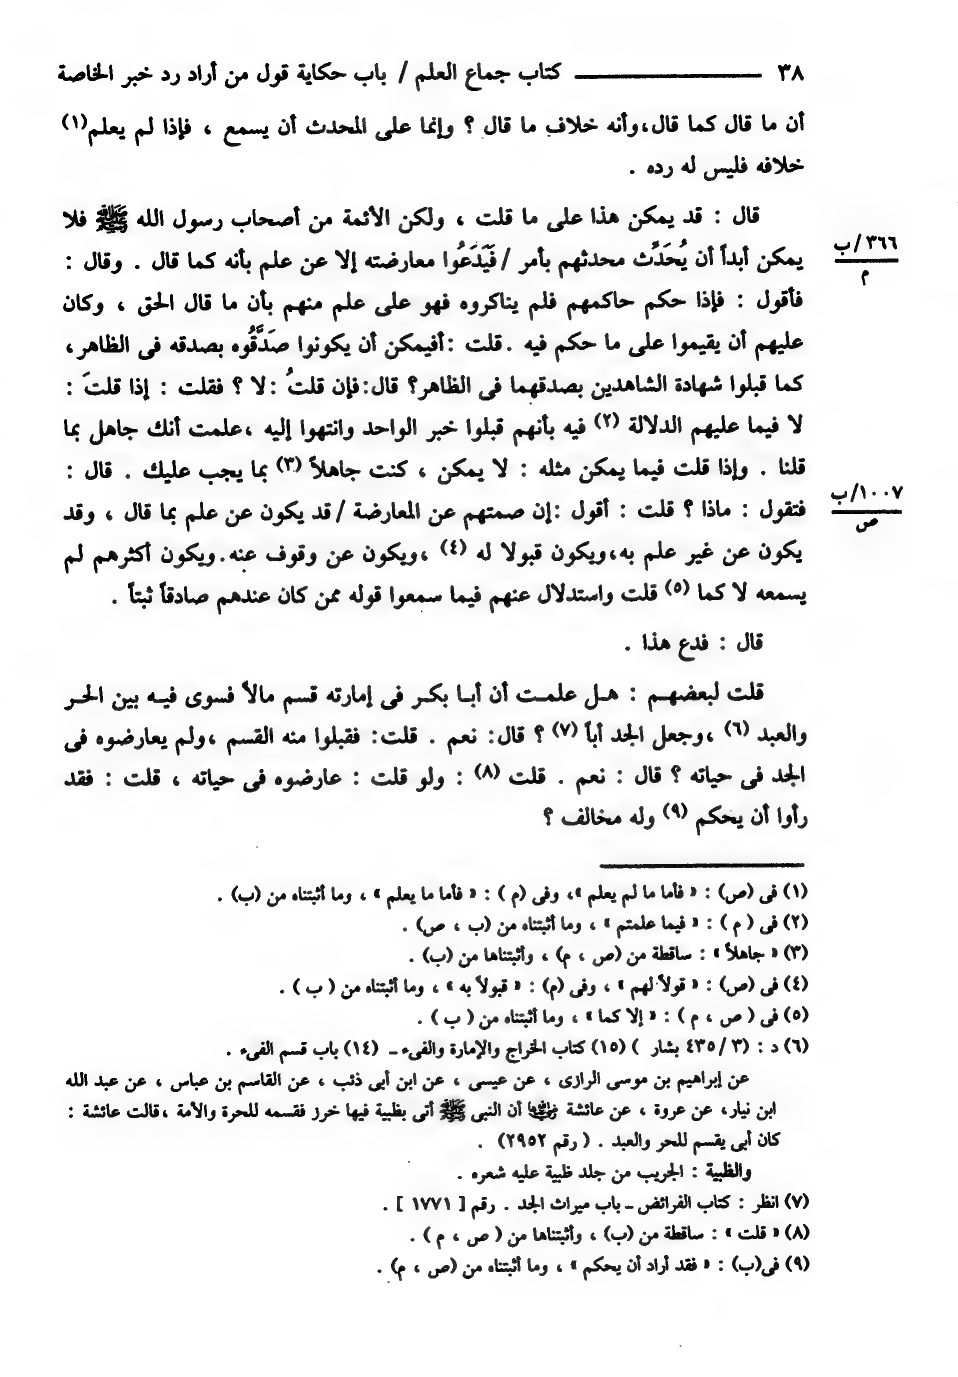 ٣٨ ــــــــ كتاب جماع العلم / باب حكاية قول من أراد رد خبر الخاصة
أن ما قال كما قال،وأنه خلاف ما قال ؟ وإنما على المحدث أن يسمع ، فإذا لم يعلم(١)
خلافه فليس له رده .
قال : قد يمكن هذا على ما قلت ، ولكن الأئمة من أصحاب رسول الله ﷺ فلا
٣٦٦/ب
م
يمكن أبداً أن يُحَدَّث محدثهم بأمر / فَيَدَعُوا معارضته إلا عن علم بأنه كما قال . وقال :
فأقول : فإذا حكم حاكمهم فلم يناكروه فهو على علم منهم بأن ما قال الحق ، وكان
عليهم أن يقيموا على ما حكم فيه .قلت :أفيمكن أن يكونوا صَدَّقُوه بصدقه فى الظاهر،
كما قبلوا شهادة الشاهدين بصدقهما فى الظاهر؟ قال:فإن قلتُ :لا ؟ فقلت : إذا قلتَ :
لا فيما عليهم الدلالة (٢) فيه بأنهم قبلوا خبر الواحد وانتهوا إليه ،علمت أنك جاهل بما
قلنا . وإذا قلت فيما يمكن مثله : لا يمكن ، كنت جاهلاً (٣) بما يجب عليك . قال :
١٠٠٧/ب
ص
فتقول : ماذا ؟ قلت : أقول :إن صمتهم عن المعارضة /قد يكون عن علم بما قال ، وقد
يكون عن غير علم به،ويكون قبولا له (٤) ،ويكون عن وقوف عنه.ويكون أكثرهم لم
يسمعه لا كما (٥) قلت واستدلال عنهم فيما سمعوا قوله ممن كان عندهم صادقاً ثبتاً .
قال : فدع هذا .
قلت لبعضهم : هل علمت أن أبا بكر فى إمارته قسم مالاً فسوى فيه بين الحر
والعبد (٦) ،وجعل الجد أباً (٧) ؟ قال: نعم . قلت: فقبلوا منه القسم ،ولم يعارضوه فى
الجد فى حياته ؟ قال : نعم . قلت (٨) : ولو قلت : عارضوه فى حياته ، قلت : فقد
رأوا أن يحكم (٩) وله مخالف ؟
(١) فى (ص) : « فأما ما لم يعلم »، وفى (م ) : « فأما ما يعلم » ، وما أثبتناه من (ب) .
(٢) فى ( م ) : « فيما علمتم » ، وما أثبتناه من (ب ، ص) .
(٣) « جاهلاً » : ساقطة من (ص ، م) ، وأثبتناها من (ب) .
(٤) فى (ص) : « قولاً لهم » ، وفى (م) : « قبولاً به » ، وما أثبتناه من ( ب ) .
(٥) فى ( ص ، م ) : « إلا كما » ، وما أثبتناه من ( ب ) .
(٦) د : (٣/ ٤٣٥ بشار ) (١٥) كتاب الخراج والإمارة والفىء ــ (١٤) باب قسم الفىء .
عن إبراهيم بن موسى الرازى ، عن عيسى ، عن ابن أبى ذئب ، عن القاسم بن عباس ، عن عبد الله
ابن نيار، عن عروة ، عن عائشة رضي الله عنها أن النبى ﷺ أتى بظبية فيها خرز فقسمه للحرة والأمة ،قالت عائشة :
كان أبى يقسم للحر والعبد . ( رقم ٢٩٥٢) .
والظبية : الجريب من جلد ظبية عليه شعره .
(٧) انظر : كتاب الفرائض ــ باب ميراث الجد . رقم [ ١٧٧١ ] .
(٨) « قلت » : ساقطة من (ب) ، وأثبتناها من ( ص ، م ) .
(٩) فى(ب) : « فقد أراد أن يحكم » ، وما أثبتناه من (ص ، م) .